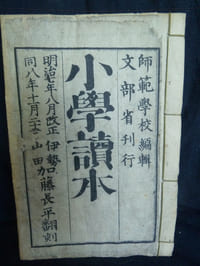 師範學校編輯
文部省刊行
小學讀本
明治七年八月改正
同八年十月二
伊勢
山田加藤長平翻刻